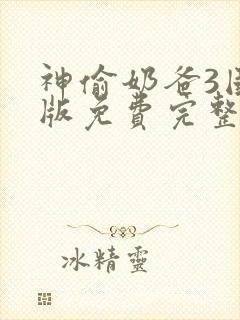 神偷奶爸3国
版免费完整
冰精靈